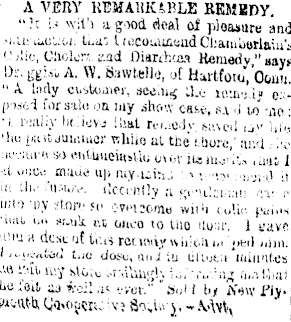 A VERY REMARKABLE REMEDY.
"It is with a good deal of pleasure and
satisfaction that I recommend Chamberlain's
Colic, Cholera and Diarrhœa Remedy," says
Druggist A. W. Sawtelle, of Hartford, Conn.
"A lady customer, seeing the remedy ex-
posed for sale on my show case, said to me:
'I really believe that remedy saved my life
the past summer while at the shore,' and she
became so enthusiastic over its merits that I
at once made up my mind to recommend it
in the future. Recently a gentleman came
into my store so overcome with colic pains
that he sank at once to the floor. I gave
him a dose of this remedy which helped him.
I repeated the dose, and in fifteen minutes
he left my store smilingly informing me that
he felt as well as ever." Sold by New Ply-
mouth Co-operative Society.—Advt.